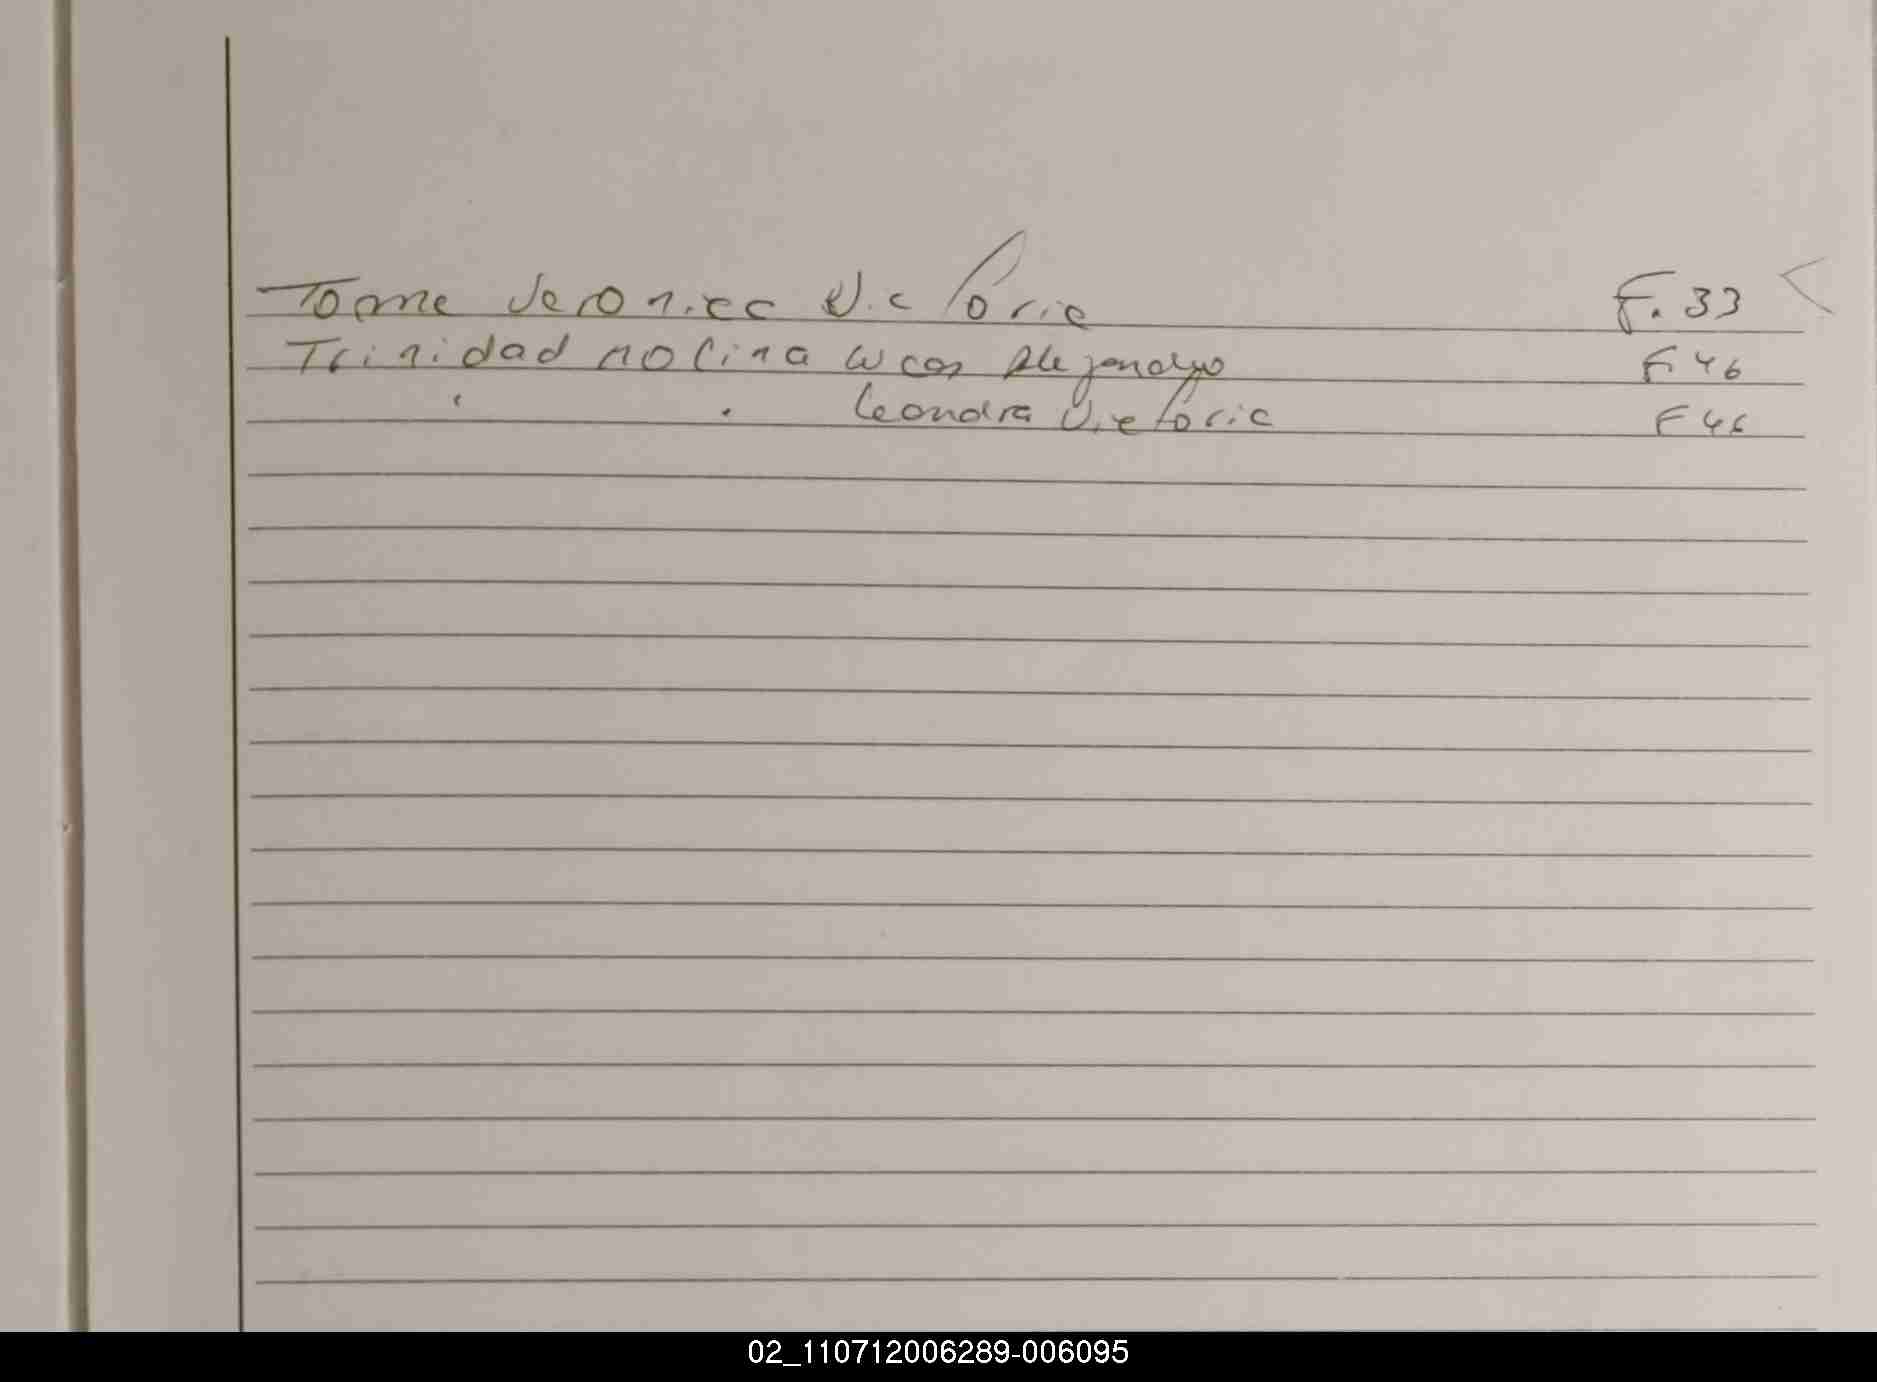 Tome Veronica Victoria F. 33
Trinidad Molina Lucas Alejandro F 46
" " Leandra Victoria F 46
02_110712006289-006095